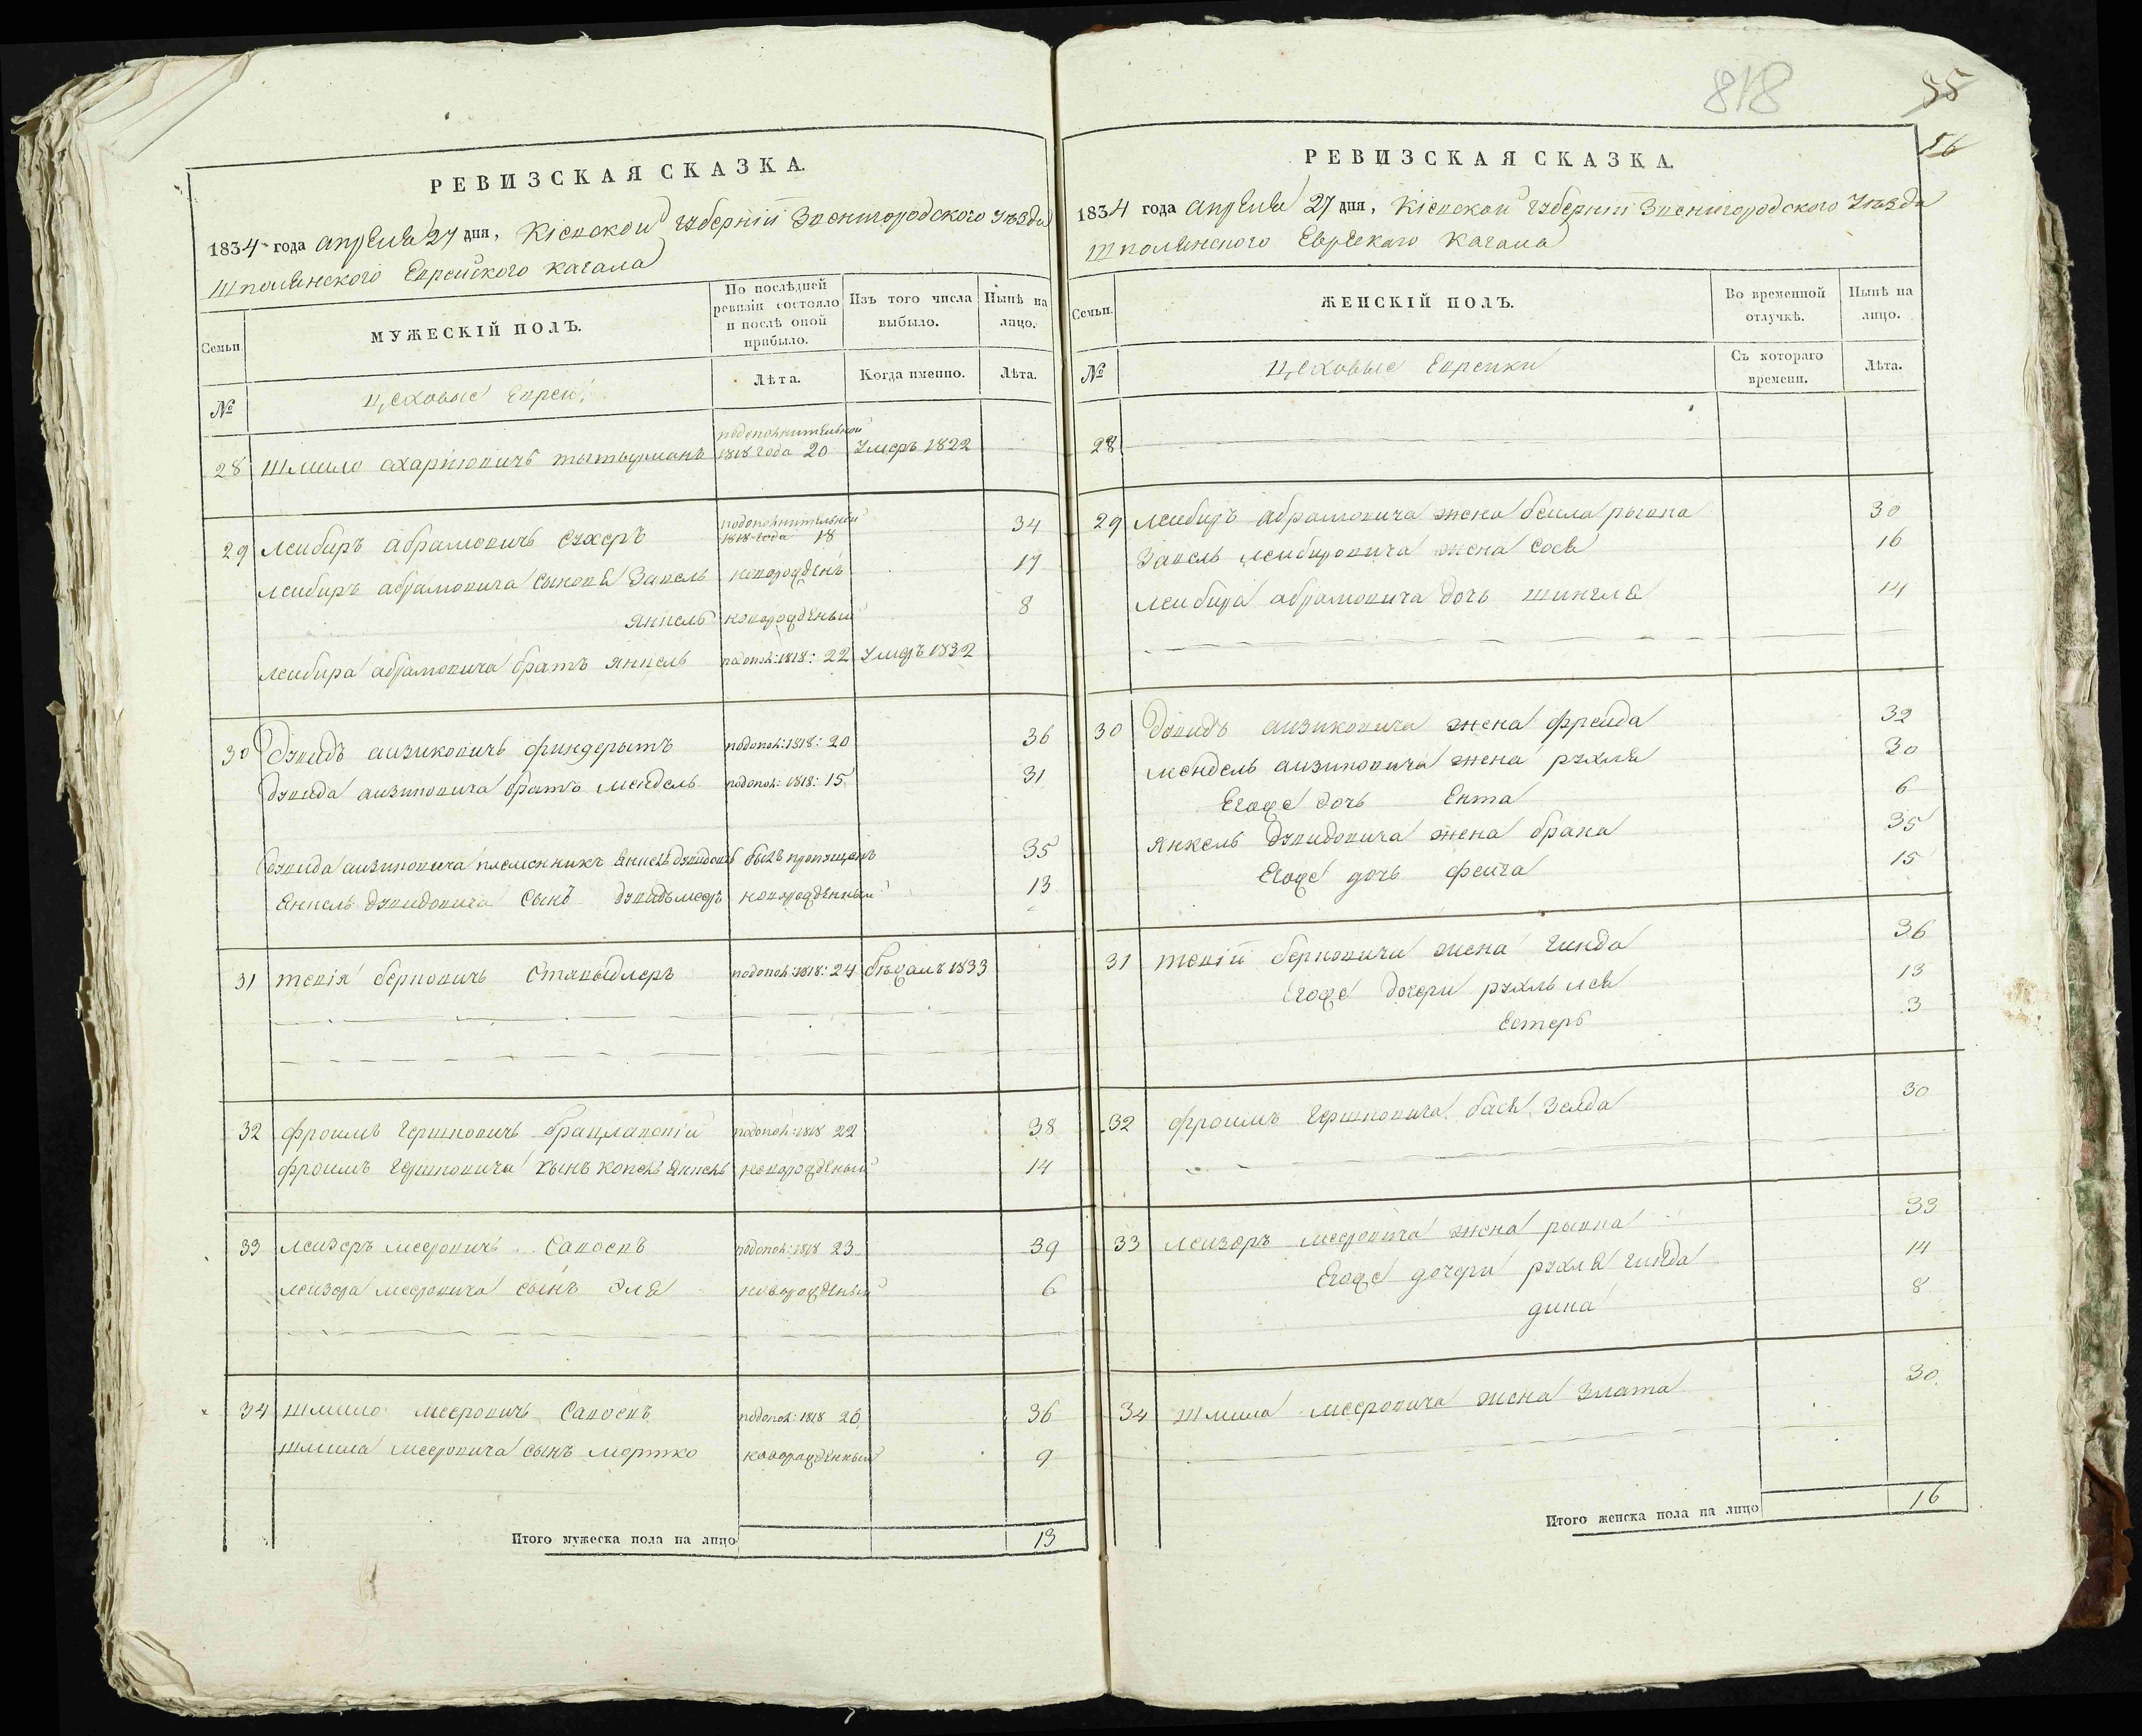 РЕВИЗСКАЯ СКАЗКА.
1834 года апреля 27 дня, Кіевской губерніи Звенигородского уезда
Шполянского Еврейского кагала
Семьи.
МУЖЕСКІЙ ПОЛЪ.
По послѣдней ревизіи состояло и послѣ оной прибыло.
Изъ того числа выбыло.
Нынѣ на лицо.
№
Цеховые Евреи,
Лѣта.
Когда именно.
Лѣта.
28 Шмило
подополнительной 1818 года 20 Умеръ 1822
29 Лейбиръ Абрамовичъ Сухеръ подополнительной 1818 года 18 34
Лейбиръ Абрамовича сыновя Завель новорожденъ 17
Янкель новорожденый 8
Лейбира Абрамовича братъ Янкель подопол: 1818: 22 Умеръ 1832
30 Дувидъ Айзиковичъ подопол: 1818: 20 36
Дувида Айзиковича братъ Мендель подопол: 1818: 15 31
Дувида Айзиковича племенникъ Янкель Дувидовъ былъ пропущенъ 35
Янкель Дувидовича сынъ Дувидъ Мееръ новорожденный 13
31 Тевія Берковичъ подопол: 1818: 24 бѣжалъ 1833
32 Фроимъ Гершковичъ Брацлавскій подопол: 1818 22 38
Фроимъ Гершковича сынъ Копель Янкель новорожденый 14
33 Лейзеръ Мееровичъ Саповъ подопол: 1818 23 39
Лейзера Мееровича сынъ Эля новорожденый 6
34 Шмило Мееровичъ Саповъ подопол: 1818 20 36
Шмила Мееровича сынъ Мортко новорожденный 9
Итого мужеска пола на лицо 13
818
55
56
РЕВИЗСКАЯ СКАЗКА.
1834 года апреля 27 дня, Кіевской губерніи Звенигородского уезда
Шполянского Еврейскаго Кагала
Семьи.
ЖЕНСКІЙ ПОЛЪ.
Во временной отлучкѣ.
Нынѣ на лицо.
№
Цеховые Еврейки
Съ котораго времени.
Лѣта.
28
29 Лейбиръ Абрамовича жена Бейла Рывка 30
Завель Лейбировича жена Сося 16
Лейбира Абрамовича дочь 14
30 Дувидъ Айзиковича жена Фрейда 32
Мендель Айзиковича жена Рухля 30
Егоже дочь Ента 6
Янкель Дувидовича жена Брана 35
Егоже дочь Фейга 15
31 Тевіи Берковича жена Гинда 36
Егоже дочери Рухль Лея 13
Естеръ 3
32 Фроимъ Гершковича Бася Зелда 30
33 Лейзоръ Мееровича жена Рывка 33
Егоже дочери Рухля Гинда 14
Дина 8
34 Шмила Мееровича жена Злата 30
Итого женска пола на лицо 16